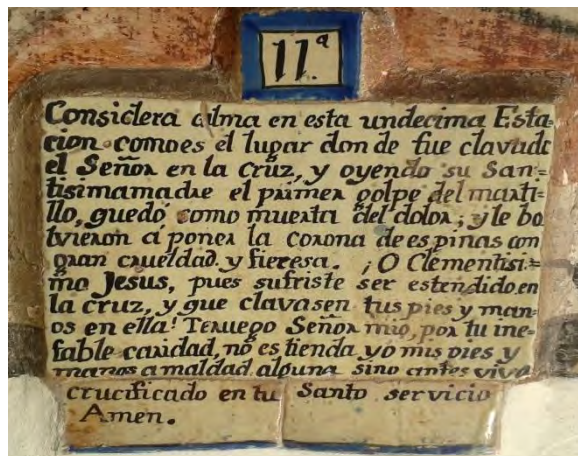 11.ª
Considera alma en esta undecima Esta=
cion comoes el lugar don de fue clavado
el Señor en la cruz, y oyendo su San=
tisimamadre el primer golpe del marti=
llo, quedó como muerta del dolor; y le bo
lvieron á poner la corona de es pinas con
gran crueldad y fieresa. ¡O Clementisi=
mo Jesus, pues sufriste ser estendido en
la cruz, y que clavasen tus pies y man=
os en ella! Teruego Señor mio, por tu ine=
fable caridad, no es tienda yo mis pies y
manos a maldad alguna sino antes viva
crucificado en tu Santo servicio
Amen.